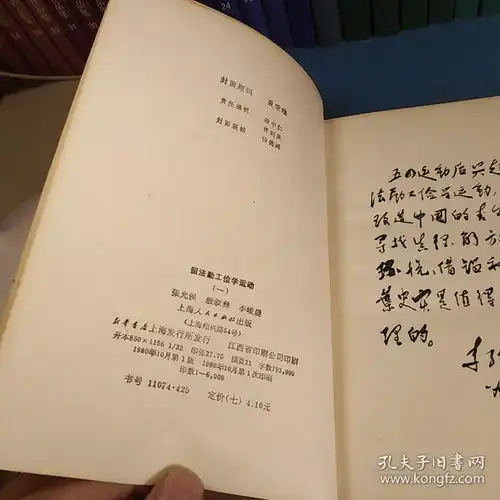 封面题词 聂荣臻
责任编辑
封面装帧
留法勤工俭学运动
(一)
张允侯 殷叙彝 李峻晨
上海人民出版社出版
(上海绍兴路54号)
新华书店上海发行所发行 江西省印刷公司印刷
开本850×1156 1/32 印张27.75 插页21 字数703,000
1980年10月第1版 1980年10月第1次印刷
印数1-6,000
书号 11074·425 定价(七) 4.10元
五四运动后兴起
法勤工俭学运动,
改造中国的
寻找真理、的方
借鉴和
叶史实是值得
理的。
孔夫子旧书网
www.kongfz.com